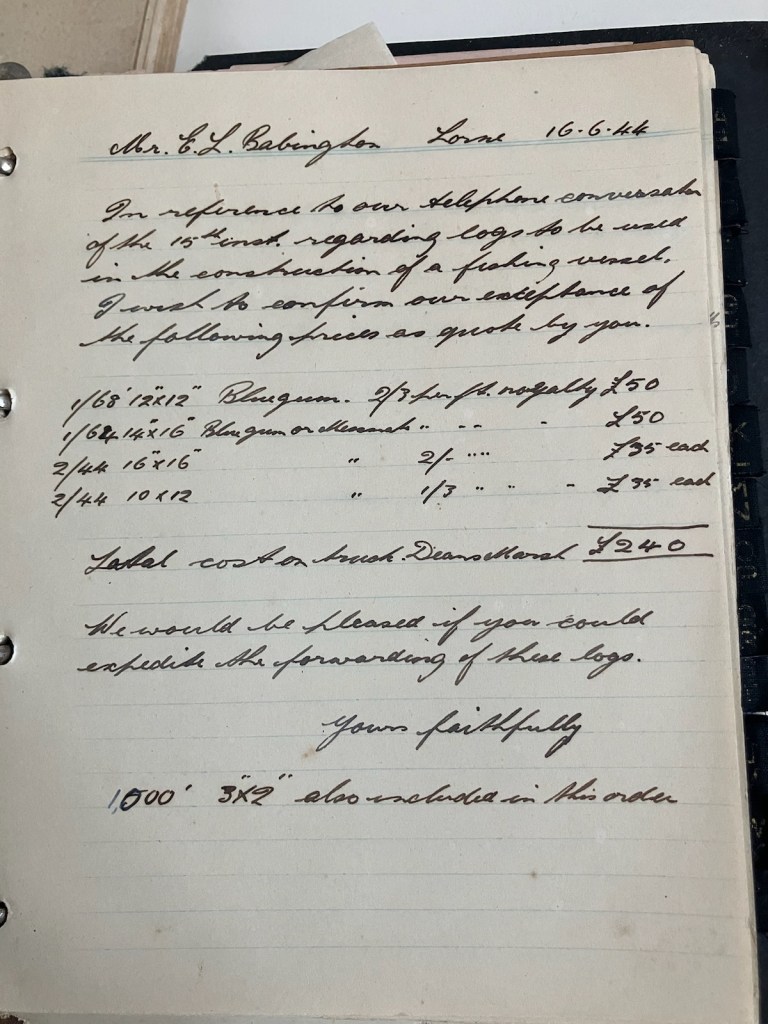 Mr. E. L. Babington Lorne 16.6.44
In reference to our telephone conversation
of the 15th inst. regarding logs to be used
in the construction of a fishing vessel.
I wish to confirm our exceptance of
the following prices as quote by you.
1/68' 12"x12" Bluegum. 2/3 per ft. royalty £50
1/62 14"x16" Bluegum or Messmate " " " - £50
2/44 16"x16" " 2/- " " £35 each
2/44 10x12 " 1/3 " " - £35 each
Total cost on truck. Deans Marsh £240
We would be pleased if you could
expedite the forwarding of these logs.
Yours faithfully
1,500' 3"x2" also included in this order